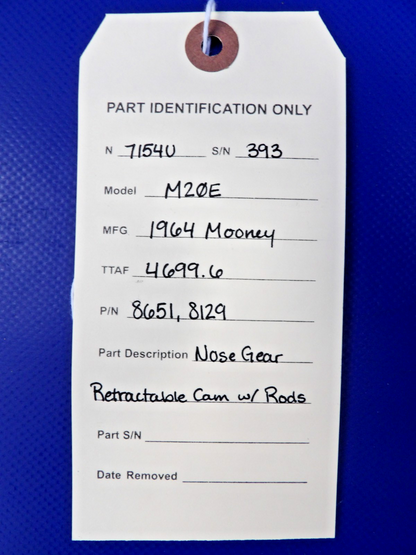 PART IDENTIFICATION ONLY
N 7154U S/N 393
Model M20E
MFG 1964 Mooney
TTAF 4699.6
P/N 8651, 8129
Part Description Nose Gear
Retractable Cam w/ Rods
Part S/N
Date Removed